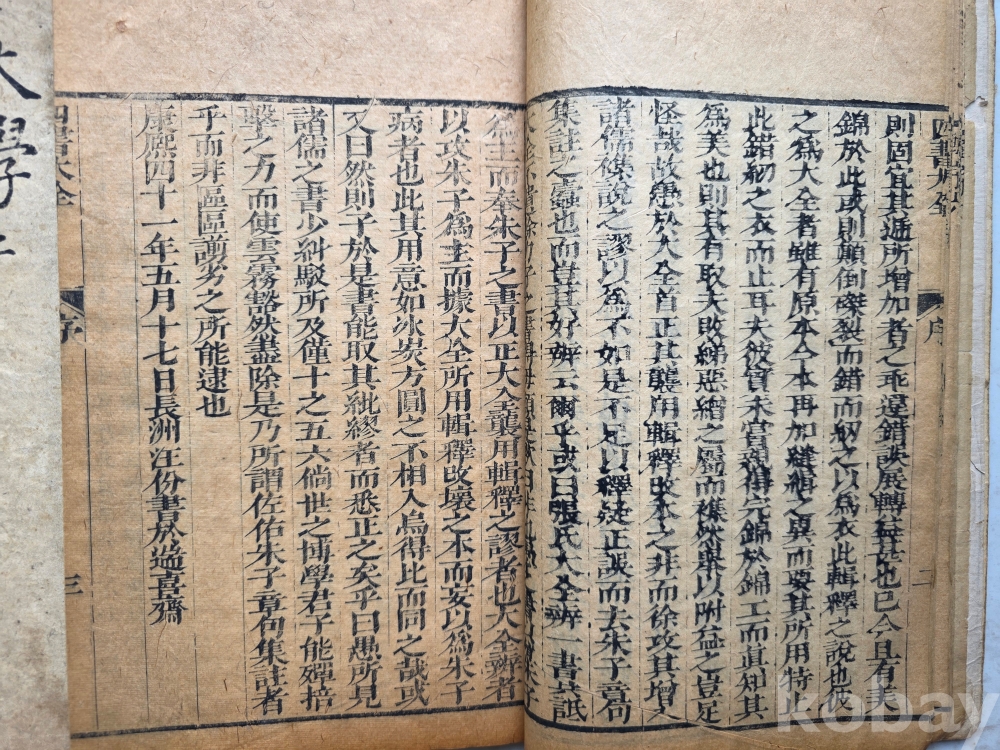 則固宜其遞所增加者之乖違錯誤展轉益甚也已今且有美
錦於此或則顛倒磔裂而錯而紉之以爲衣此輯釋之說也彼
之爲大全者雖有原本今本再加縫緝之異而要其所用特止
此錯紉之衣而止耳夫彼實未嘗獨得完錦於錦工而眞知其
爲美也則其有取夫敗綈惡繒之屬而襍然與以附益之豈足
怪哉故愚於大全首正其襲用輯釋改本之非而徐攻其增入
諸儒襍說之謬以爲不如是不足以釋疑正誤而去朱子章句
集註之蠹也而豈其好辨云爾乎或曰張氏大全辨一書其詆
爲主而奉朱子之書以正大全襲用輯釋之謬者也大全辨者
以攻朱子爲主而據大全所用輯釋改壞之本而妄以爲朱子
病者也此其用意如冰炭方圓之不相入烏得比而同之哉或
又曰然則子於是書能取其紕繆者而悉正之矣乎曰愚所見
諸儒之書少糾駁所及僅十之五六倘世之博學君子能殫掊
擊之力而使雲霧豁然盡除是乃所謂佐佑朱子章句集註者
乎而非區區謭劣之所能逮也
康熙四十一年五月十七日長洲汪份書於遄喜齋
四書大全
序
二
四書大全
序
三
大學
kobay